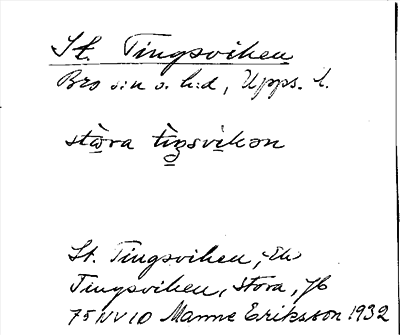 St. Tingsviken
Bro sn o. h:d, Upps. l.
stωra tìŋsvikən
St. Tingsviken, Ek
Tingsviken, Stora, Jb
75NV10 Manne Eriksson 1932